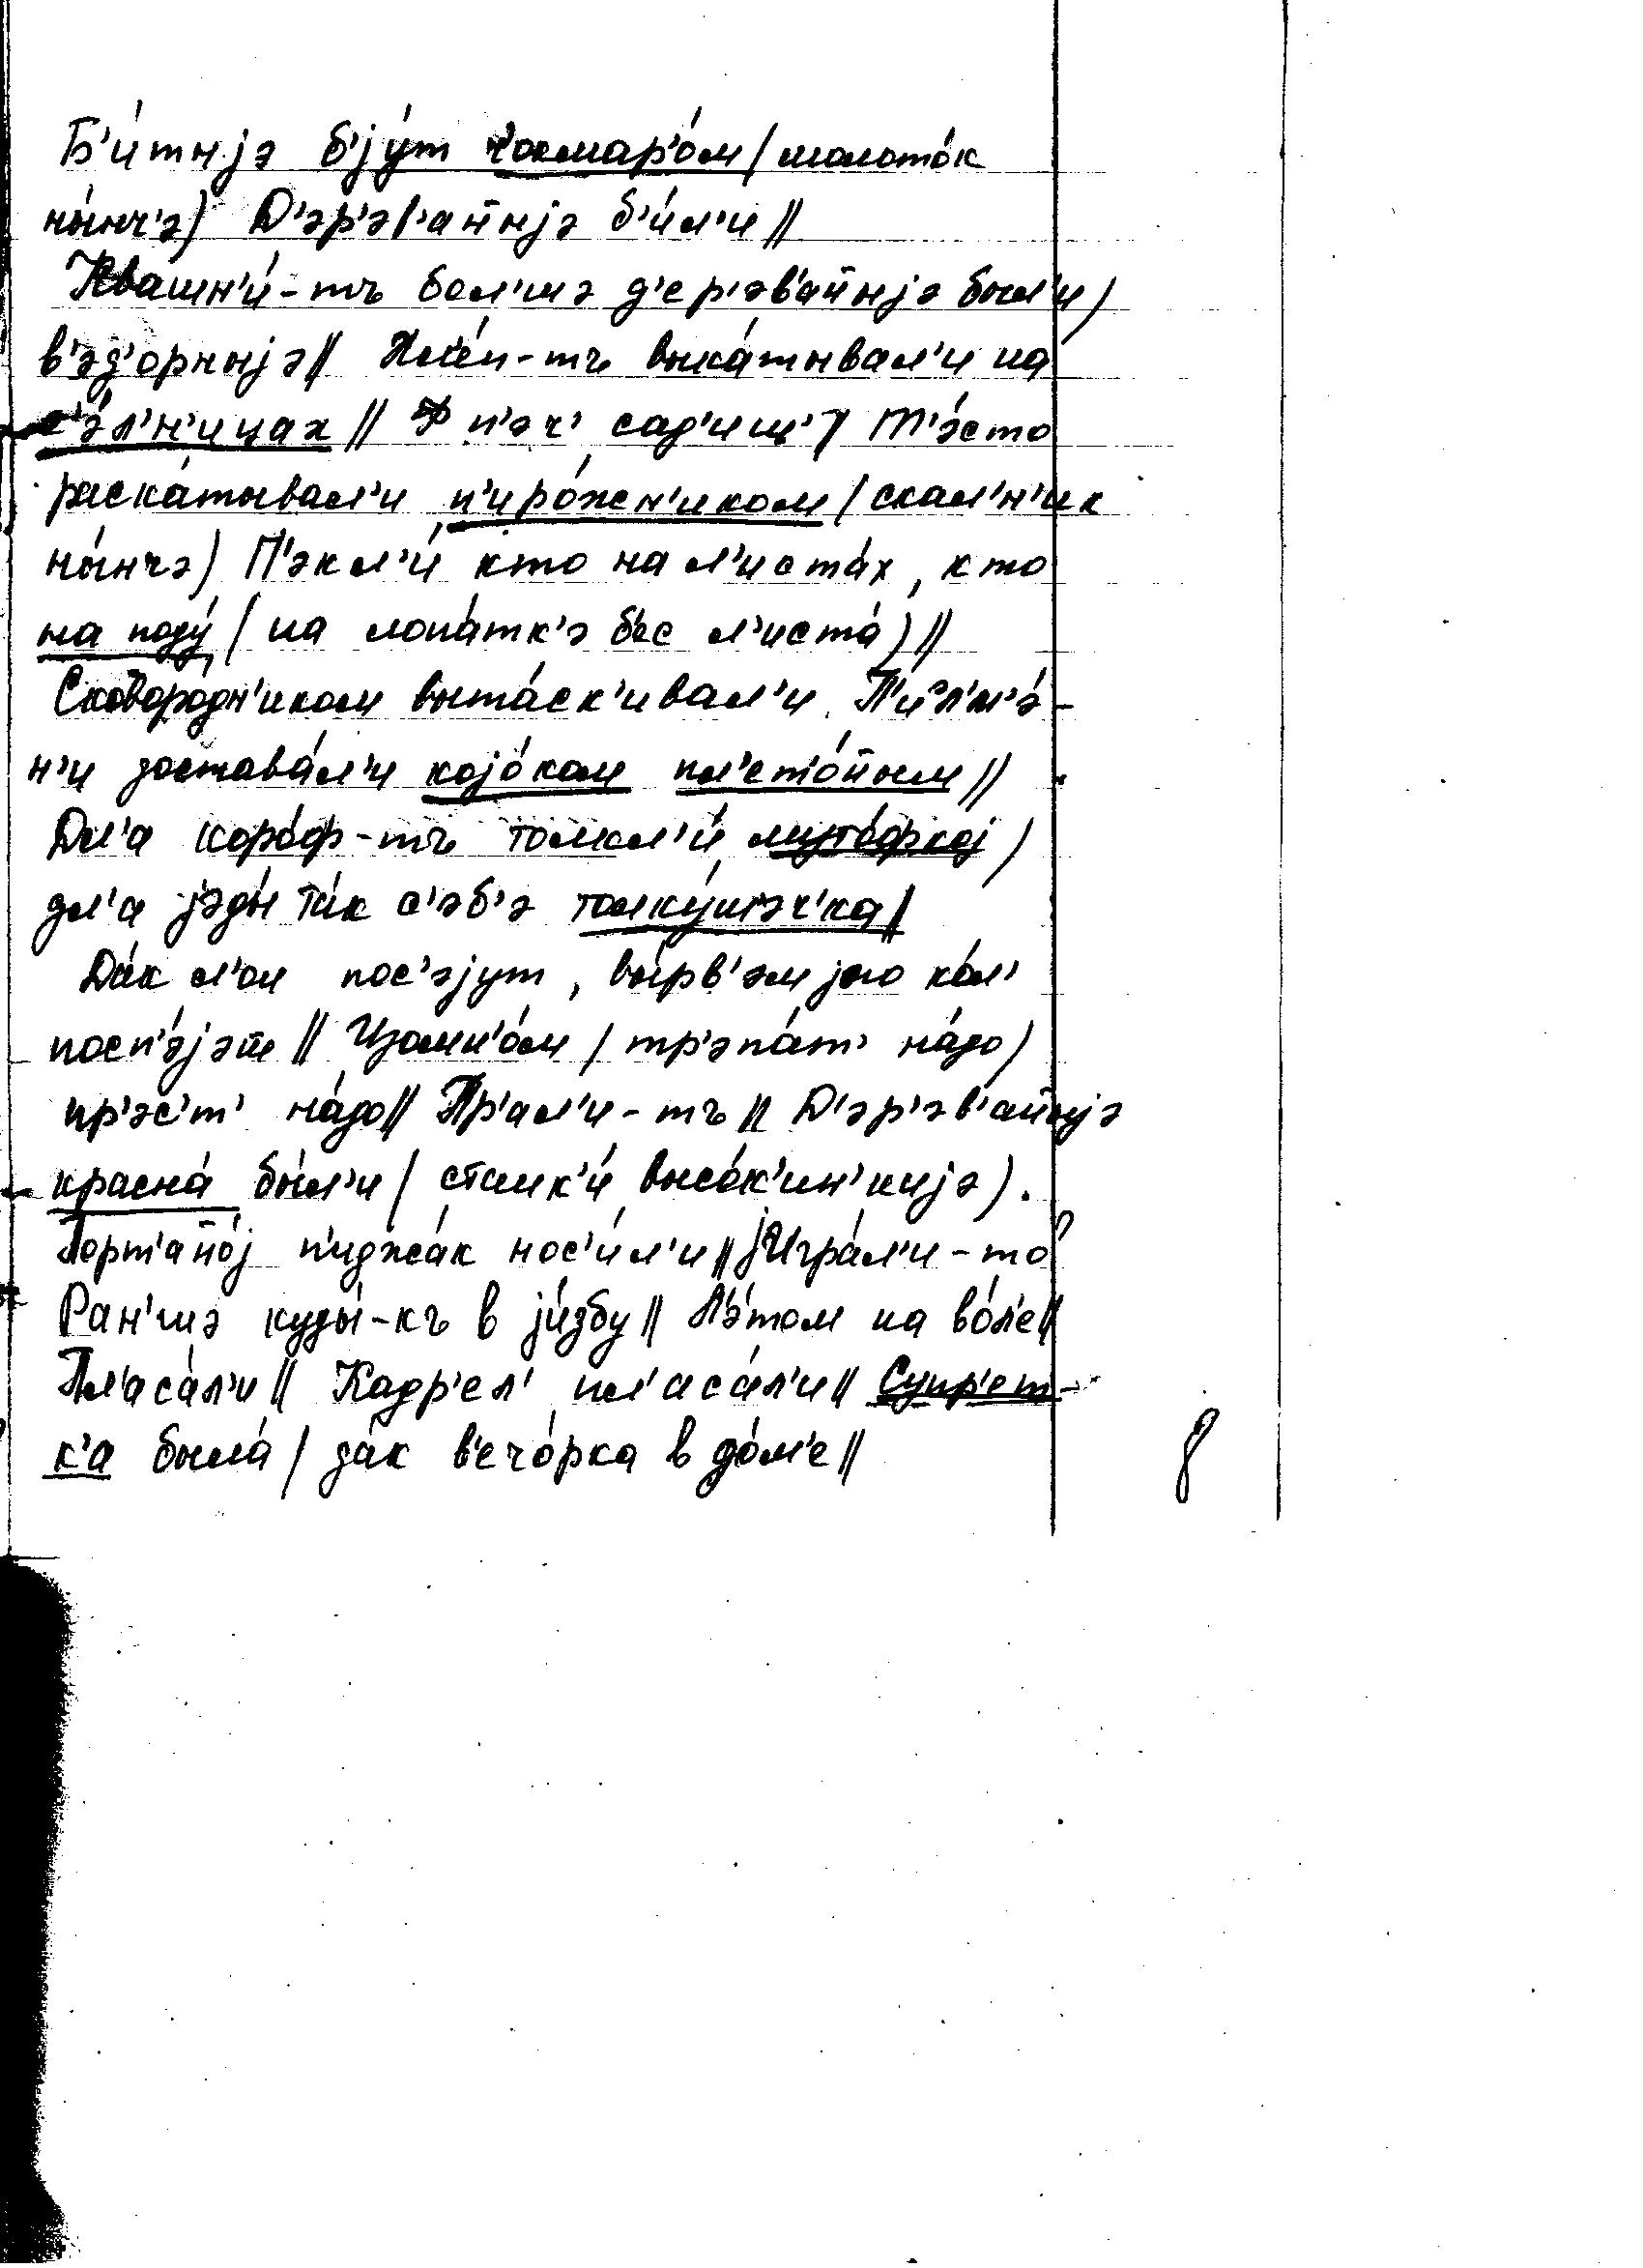 Б'и́тнjэ б'jу́т ч'окмар'о́м (молото́к
ны́нч'э) Д'эр'эв'а̄нjэ б'и́л'и //
Квашн'и́-тъ бол'шэ д'ер'эв'а̄нjэ был'и,
в'эд'орныjэ // Хл'е́п-тъ выка́тывал'и на
с'э́л'н'ицах // Ф п'эч' сад'иш' / Т'э́сто
раска́тывал'и п'иро́жн'иком (скал'н'ик
ны́нчэ) П'экл'и́ кто на л'иста́х, кто
на поду́ (на лопа́тк'э бес л'иста́) //
Сковоро́дн'иком выта́ск'ивал'и. П'ил'м'э́-
н'и доставáл'и коjо́ком пл'ето́ным //
Дл'а коро́ф-тъ толкл'и́ муто́фкоj,
дл'а jэды́ та́к с'эб'э толку́шэч'ка //
Да́к л'он пос'эjут, вы́рв'эм jого ко́л'
посп'э́jэт // Изомн'о́м (тр'эпа́т' на́до)
пр'эс'т' на́до // Пр'ал'и-тъ // Д'эр'эв'а̄нjэ
красна́ бы́л'и (станк'и́ высо́к'ин'киjэ).
Порт'ано́j п'иджа́к нос'и́л'и // jИгра́л'и-то
Ран'шэ куды́-къ в jи́збу // Л'э́том на во́л'е //
Пл'аса́л'и // Кадр'е́л' пл'аса́л'и // Супр'ет-
к'а была́ / да́к в'ечо́рка в до́м'е //
8